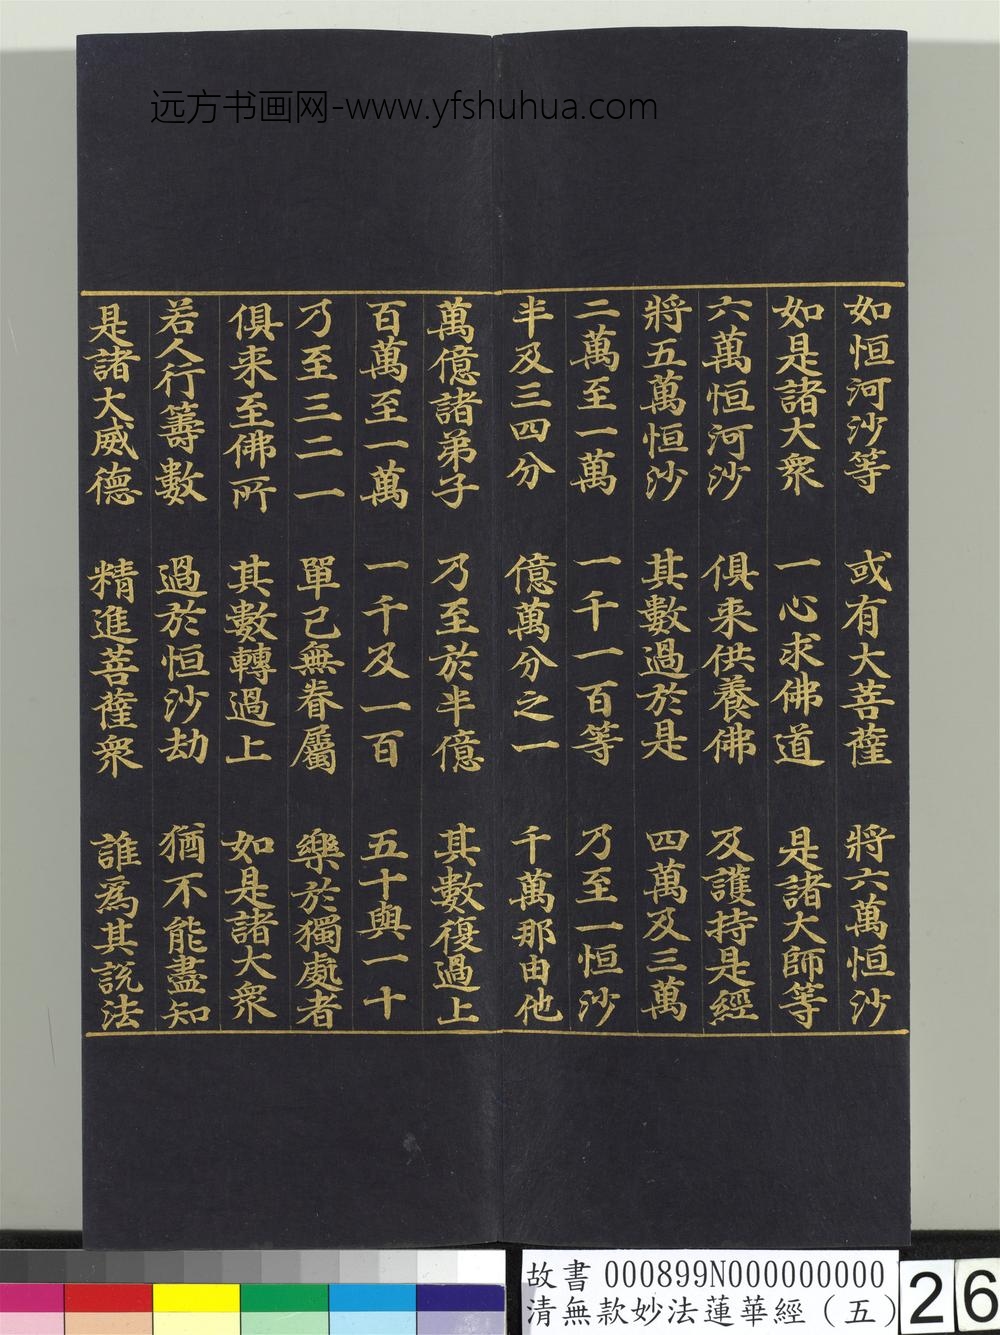 远方书画网-www.yfshuhua.com
如恒河沙等 或有大菩薩 將六萬恒沙
如是諸大衆 一心求佛道 是諸大師等
六萬恒河沙 俱来供養佛 及護持是經
將五萬恒沙 其數過於是 四萬及三萬
二萬至一萬 一千一百等 乃至一恒沙
半及三四分 億萬分之一 千萬那由他
萬億諸弟子 乃至於半億 其數復過上
百萬至一萬 一千及一百 五十與一十
乃至三二一 單己無眷屬 樂於獨處者
俱来至佛所 其數轉過上 如是諸大衆
若人行籌數 過於恒沙劫 猶不能盡知
是諸大威德 精進菩薩衆 誰爲其説法
故書 000899N000000000
清無款妙法蓮華經（五）
26